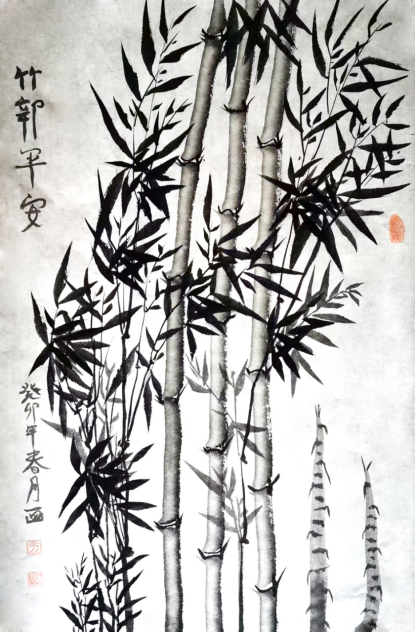 竹報平安
癸卯年春月画